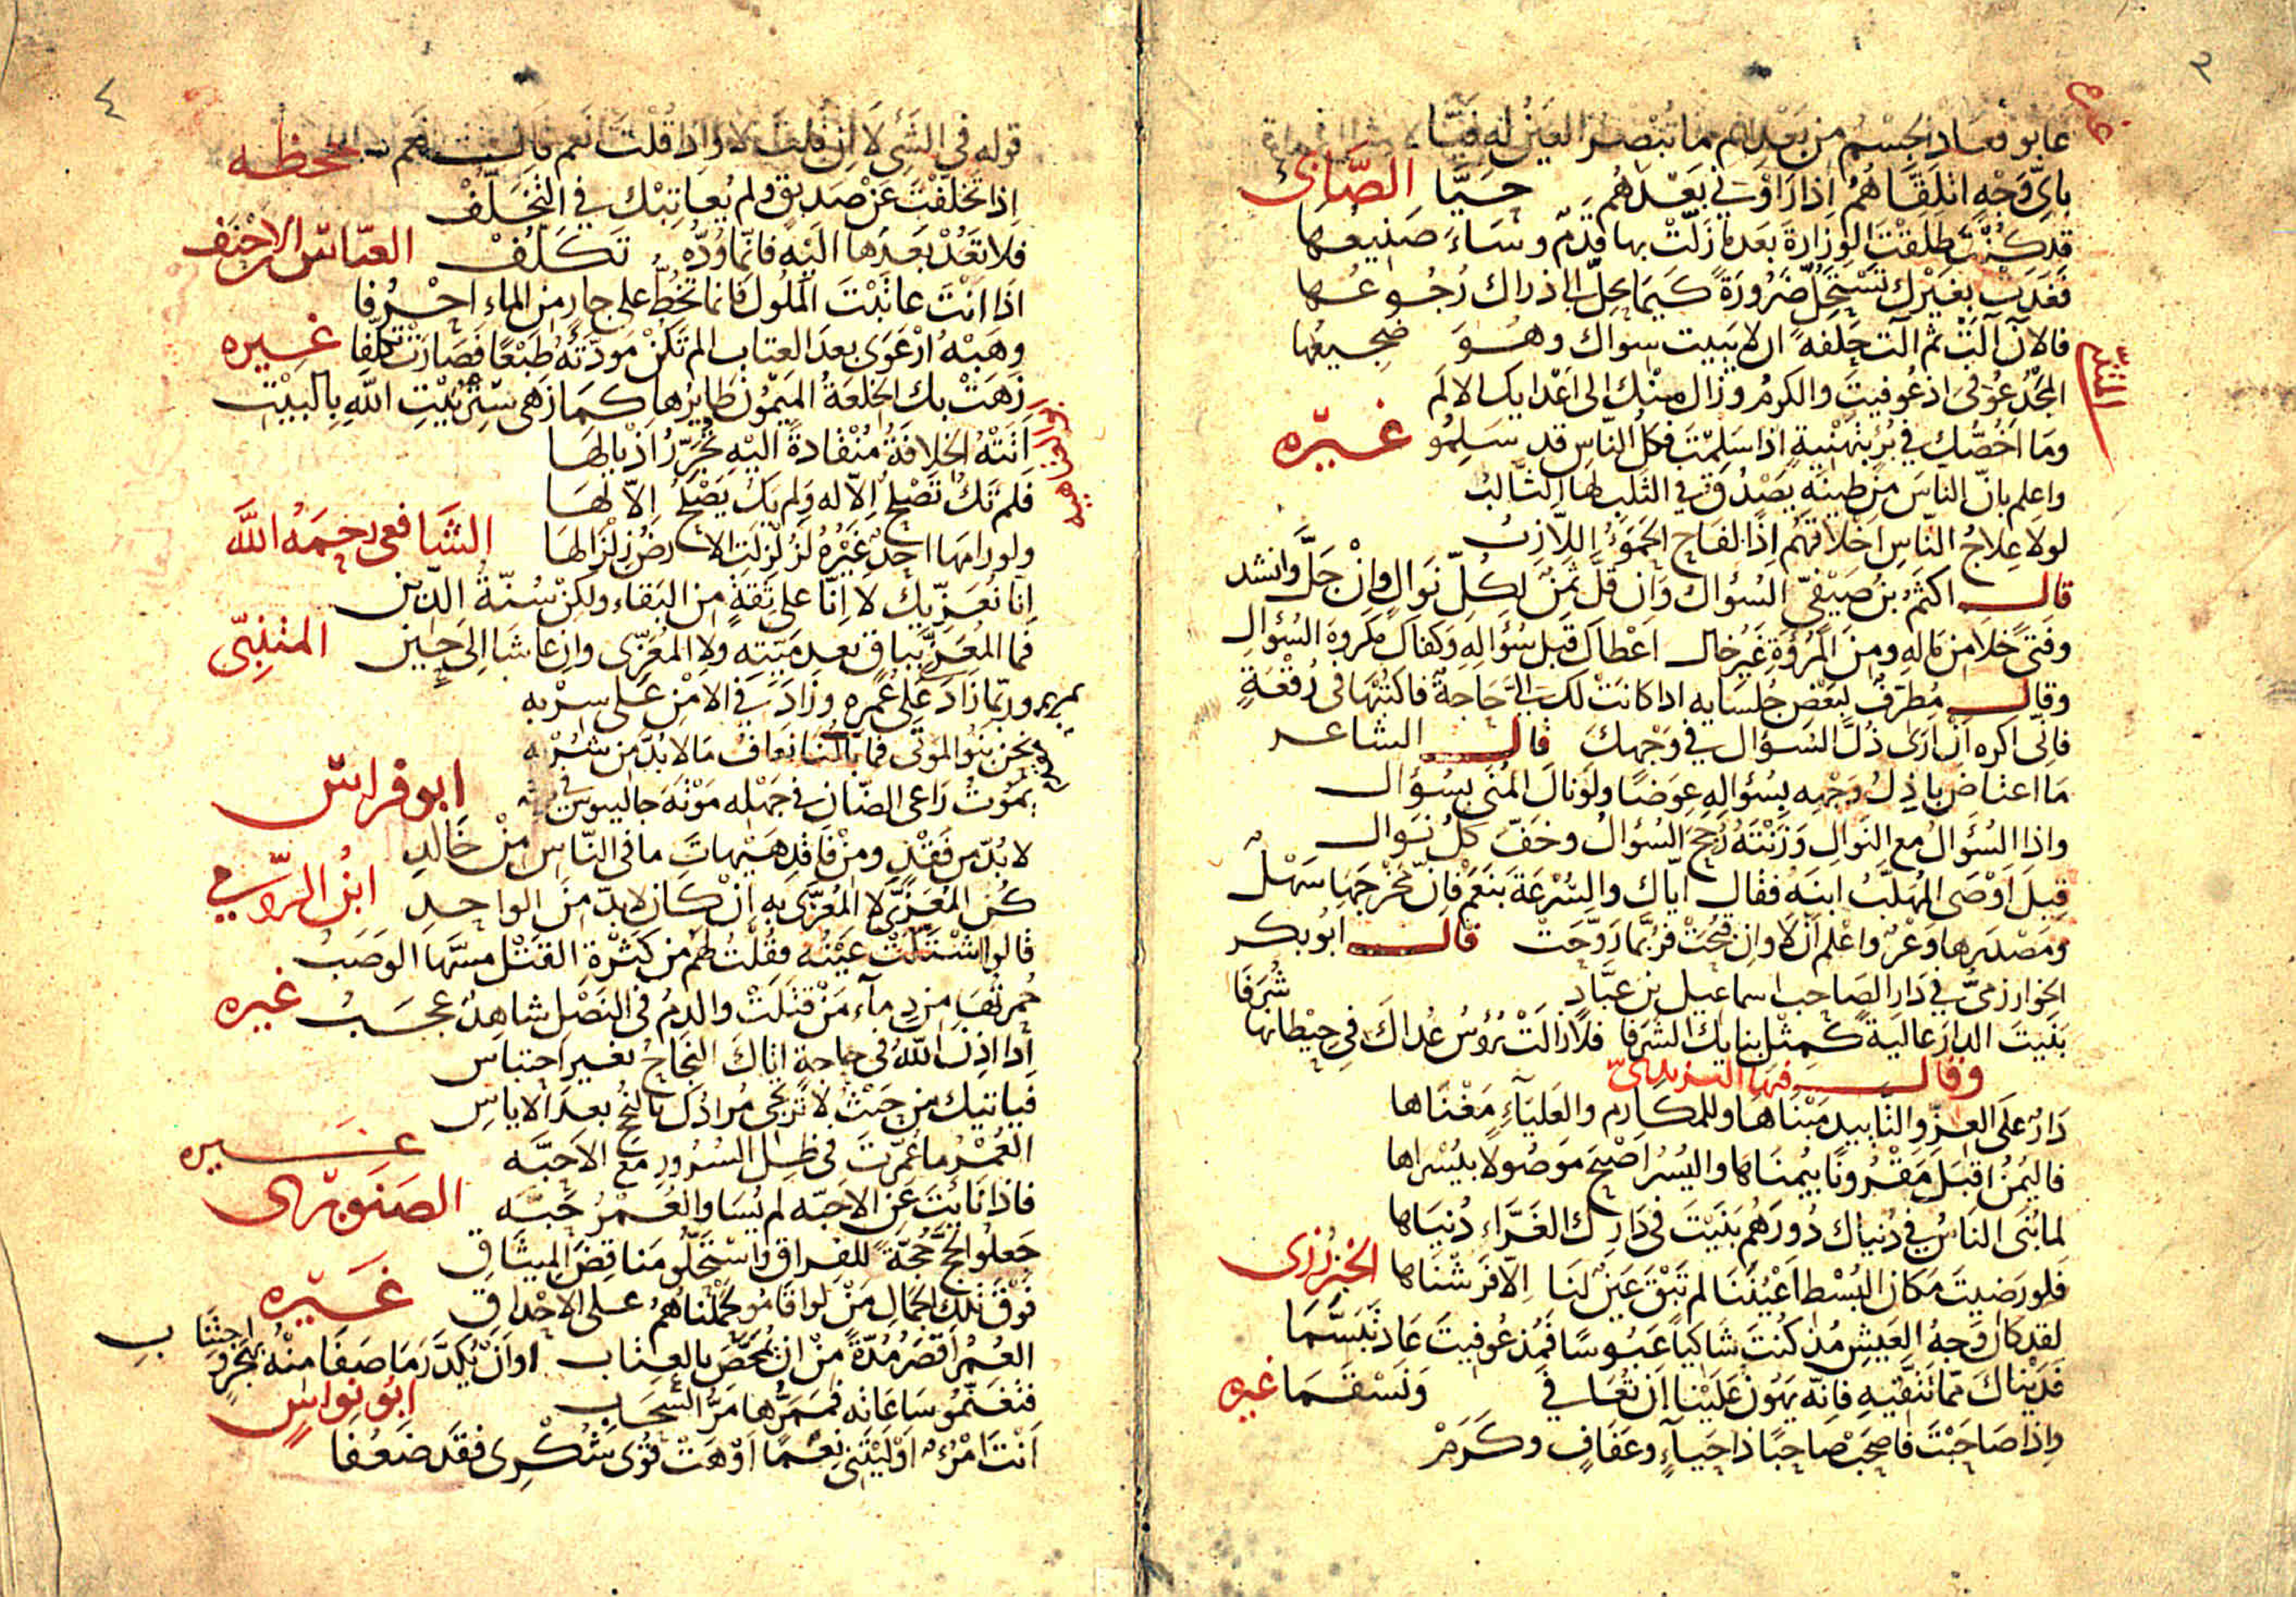 ٣
غابو فعاد الجسم من بعدهم ما تبصر العين له فيّا
باي وجه اتلقاهم اذا راوني بعدهم حيّا الصّابئ
قد كنت طلقت الوزارة بعدما زلّت بها قدم وساء صنيعها
فغدت بغيرك تستحلّ ضرورة كيما يحلّ الى ذراك رجوعها
فالآن آلت ثم آلت حلفة ان لا يبيت سواك وهو ضجيعها
المتنبي
المجد عوفى اذ عوفيت والكرم وزال منك الى اعدايك الالم
وما اخصّك في برء بتهنية اذا سلمت فكل الناس قد سلمو غيره
واعلم بانّ الناس من طينة يصدق في الثلب لها الثالب
لولا علاج الناس اخلاقهم اذا لفاح الحمؤ اللازب
قال اكثم بن صيفيّ السؤال وان قلّ ثمن لكلّ نوال وان جلّ وانشد
وفتى خلا من ماله ومن المرؤة غير خال اعطاك قبل سؤاله وكفاك مكروه السؤال
وقال مطرف لبعض جلسايه اذا كانت لك اليّ حاجة فاكتبها في رقعة
فانّى اكره ان ارى ذلّ السؤال في وجهك قال الشاعر
ما اعتاض باذل وجهه بسؤاله عوضا ولو نال المنى بسؤال
واذا السؤال مع النوال وزنته رجح السؤال وخفّ كل نوال
قيل اوصى المهلّب ابنه فقال ايّاك والسرعة بنعم فانّ مخرجها سهل
ومصدرها وعر واعلم ان لا وان قبحت فربّما روّحت قال ابو بكر
الخوارزميّ في دار الصاحب اسماعيل بن عبّاد
بنيت الدار عالية كمثل بنايك الشرفا فلا زالت رؤس عداك في حيطانها شرفا
وقال فيها
دار على العزّ والتابيد مبناها وللمكارم والعلياء مغناها
فاليمن اقبل مقرونا بيمناها واليسر اصبح موصولا بيسراها
لما بنى الناس في دنياك دورهم بنيت في دارك الغرّاء دنياها
فلو رضيت مكان البسط اعيننا لم تبق عين لنا الّا فرشناها الخبزرزى
لقد كان وجه العيش مذ كنت شاكيا عبوسا فمذ عوفيت عاد تبسّما
فديناك ممّا تتقيه فانّه يهون علينا ان تعافى ونسقما غيره
واذا صاحبت فاصحب صاحبا ذا حياء وعفاف وكرم
٤
قوله في الشئ لا ان قلت لا واذا قلت نعم قال نعم جحظه
اذا تخلفت عن صديق ولم يعاتبك في التخلّف
فلا تعد بعدها اليه فانّما ودّه تكلّف العبّاس الاحنف
اذا انت عاتبت الملول فانما تخطّ على جار من الماء احرفا
وهبه ارعوى بعد العتاب الم تكن مودّته طبعا فصارت تكلّفا غيره
زهت بك الخلعة الميمون طايرها كما زهى ستر بيت الله بالبيت
ابو العتاهيه
اتته الخلافة منقادة اليه تجرّر اذيالها
فلم تك تصلح الّا له ولم يك يصلح الّا لها
ولو رامها احد غيره لزلزلت الارض زلزالها الشافعى رحمه الله
انا نعزّيك لا انّا على ثقة من البقاء ولكن سنّة الدين
فما المعزّى بباق بعد ميّته ولا المعزّى وان عاشا الى حين المتنبّى
وربّما زاد على عمره وزاد في الامن على سربه
نحن بنو الموتى فما بالنا نعاف ما لا بدّ من شربه
يموت راعى الضان في جهله موتة جالينوس في طبه ابو فراس
لا بدّ من فقد ومن فاقد هيهات ما في الناس من خالد
كن المعزّى لا المعزّى به ان كان لا بدّ من الواحد ابن الرومي
قالوا اشتكت عينه فقلت لهم من كثرة القتل مسّها الوصب
حمرتها من دماء من قتلت والدم في النصل شاهد عجب غيره
اذا اذن الله في حاجة اتاك النجاح بغير احتباس
فياتيك من حيث لا ترتجى مرادك بالنجح بعد الاياس
غيره
العمر ما عمّرت في ظل السرور مع الاحبّه
فاذا نايت عن الاحبّه لم يساو العمر حبّه الصنوبرى
جعلو الحجّ حجّة للفراق واستحلّو مناقض الميثاق
فوق تلك الجمال من لو اقامو لحملناهم على الاحداق غيره
العمر اقصر مدّة من ان يمحّص بالعتاب او ان يكدّر ما صفا منه بهجر واجتناب
فتغنّمو ساعاته فممرّها مرّ السّحاب ابو نواس
انت امرء اوليتنى نعما اوهت قوى شكرى فقد ضعفا